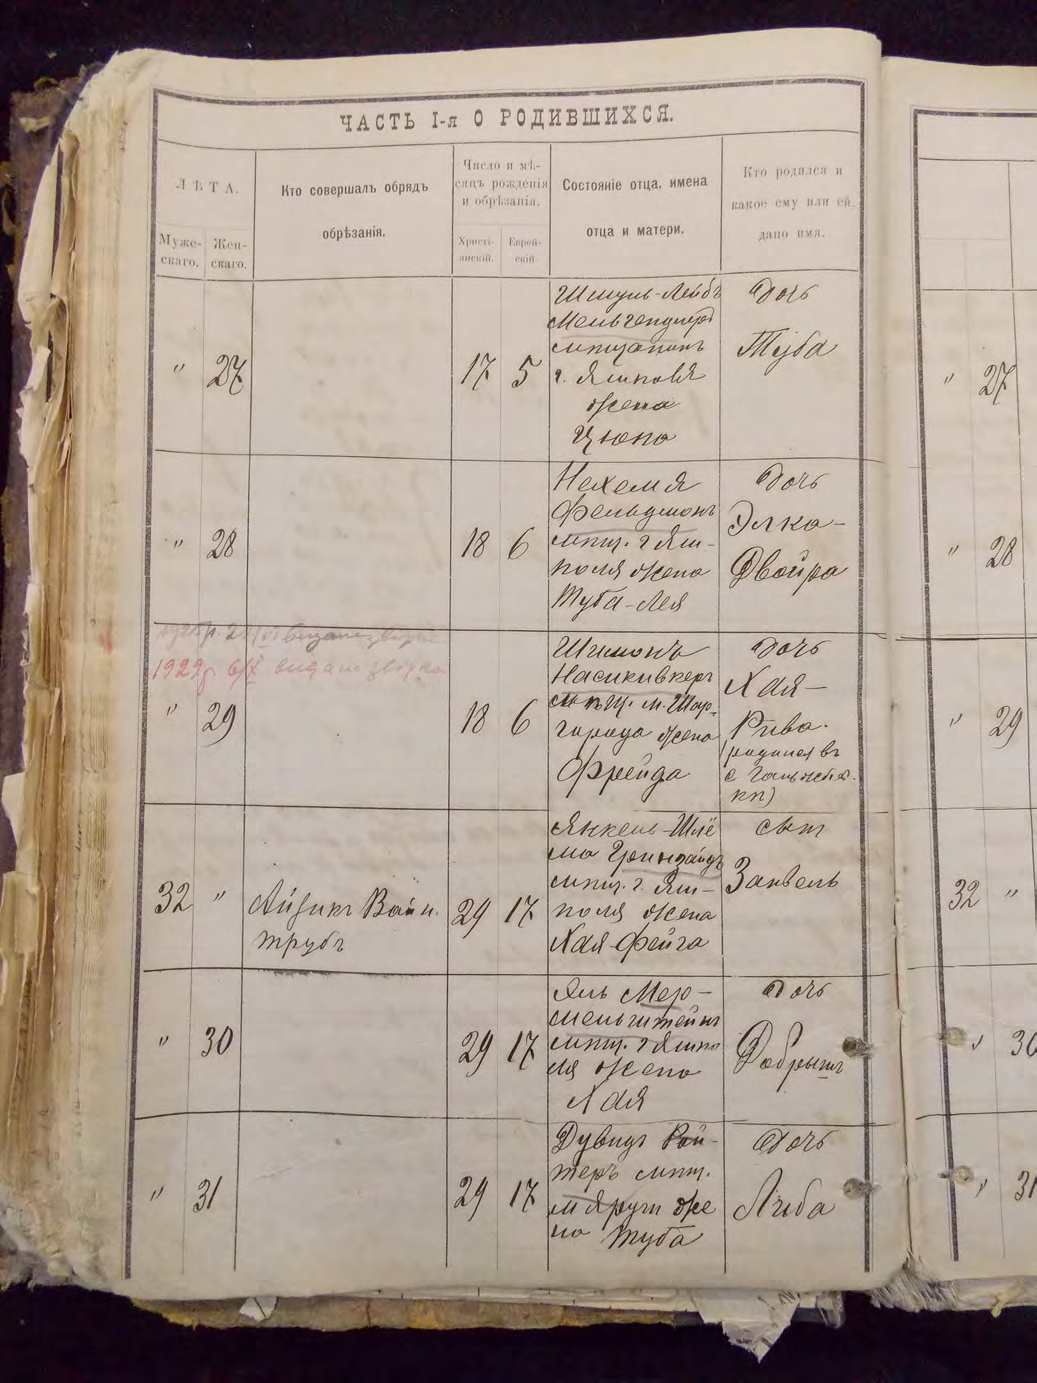 ЧАСТЬ I-я О РОДИВШИХСЯ.
ЛѢТА.
Муже-
скаго.
Жен-
скаго.
Кто совершалъ обрядъ
обрѣзанія.
Число и мѣ-
сяцъ рожденія
и обрѣзанія.
Христі-
анскій.
Еврей-
скій.
Состояніе отца, имена
отца и матери.
Кто родился и
какое ему или ей
дано имя.
" 27
17 5
Шмуль-Лейбъ
мѣщанинъ
г. Ямполя
жена
Цюпа
Дочь
Туба
" 28
18 6
Нехемія
Фельдманъ
мѣщ. г Ям-
поля жена
Туба-Лея
Дочь
Элка-
Двойра
1929 р. 6/X видана звідка
" 29
18 6
Шимонъ
мѣщ. м. Шар-
города жена
Фрейда
Дочь
Хая-
Рива.
(родился въ
с.
" 32
32 "
Айзикъ Вайн-
трубъ
29 17
Янкель-Шлё
ма Гринзайдъ
мѣщ. г. Ям-
поля жена
Хая-Фейга
сынъ
Занвель
" 30
29 17
мельштейнъ
мѣщ. г Ямпо
ля жена
Хая
Дочь
Добрышъ
" 31
29 17
Дувидъ Рой-
теръ мѣщ.
м Яруги же
на Туба
Дочь
Либа
" 27
" 28
" 29
32 "
" 30
" 31